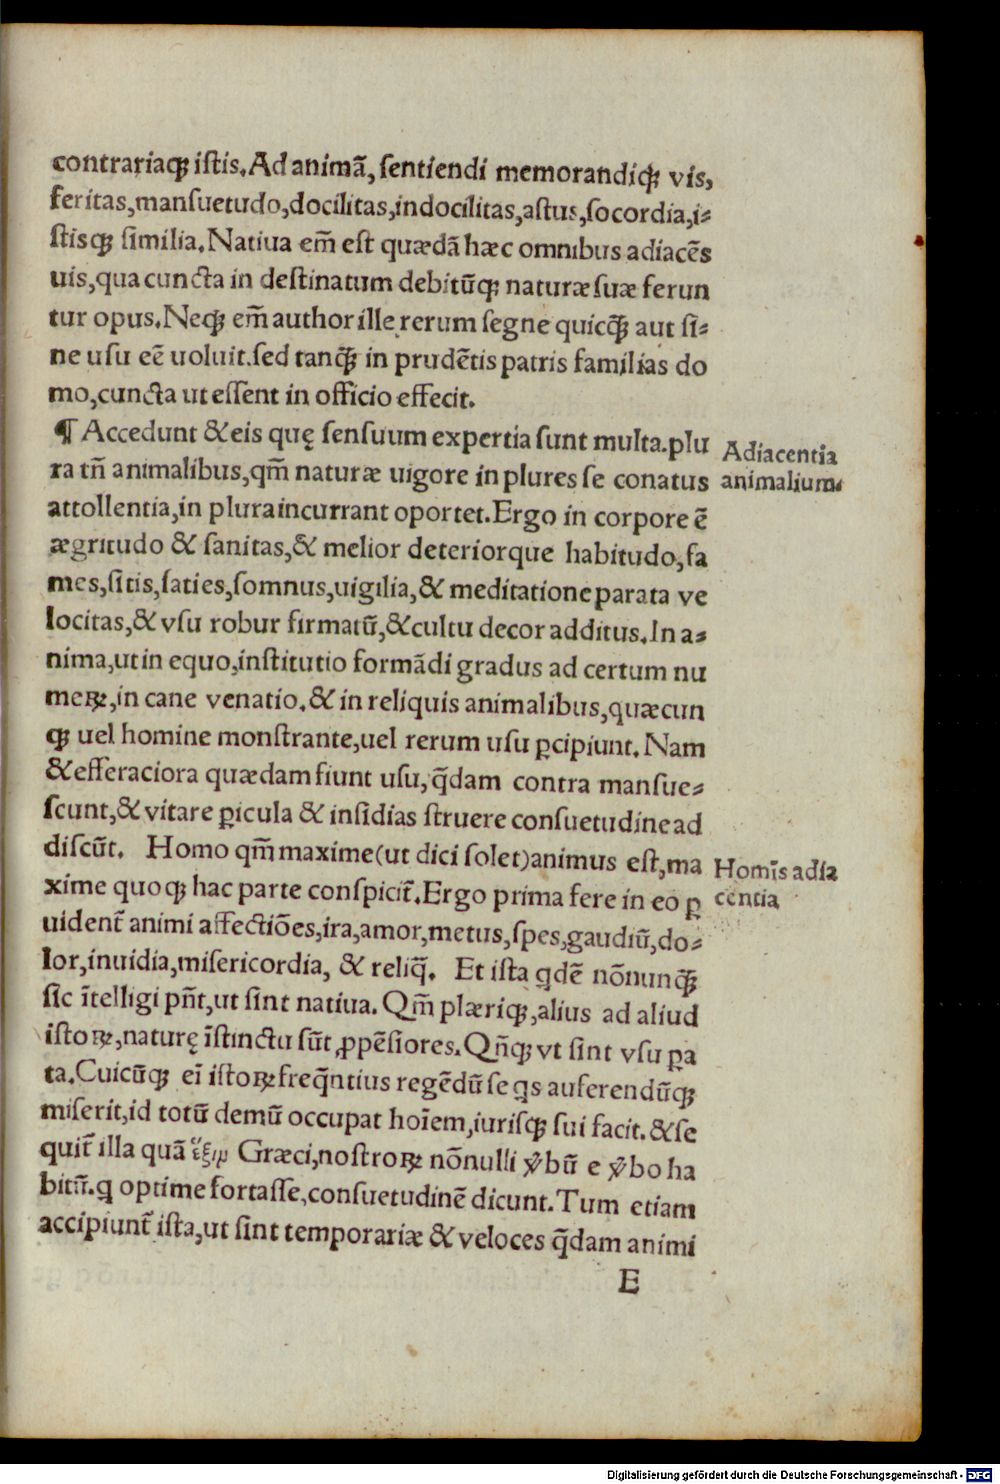 contrariaqꝫ istis. Ad animã, sentiendi memorandiqꝫ vis,
feritas, mansuetudo, docilitas, indocilitas, astus, socordia, i⸗
stisqꝫ similia. Natiua em̃ est quædã hæc omnibus adiacẽs
uis, qua cuncta in destinatum debitũqꝫ naturæ suæ ferun
tur opus. Neqꝫ em̃ author ille rerum segne quicꝗ̃ aut si⸗
ne usu eẽ uoluit. sed tanꝗ̃ in prudẽtis patris familias do
mo, cuncta ut essent in officio effecit.
¶ Accedunt & eis quę sensuum expertia sunt multa. plu
ra tñ animalibus, qm̃ naturæ uigore in plures se conatus
Adiacentia
animalium.
attollentia, in plura incurrant oportet. Ergo in corpore ẽ
ægritudo & sanitas, & melior deteriorque habitudo, fa
mes, sitis, saties, somnus, uigilia, & meditatione parata ve
locitas, & vsu robur firmatũ, & cultu decor additus. In a⸗
nima, ut in equo, institutio formãdi gradus ad certum nu
meꝝ, in cane venatio. & in reliquis animalibus, quæcun
qꝫ uel homine monstrante, uel rerum usu ꝑcipiunt. Nam
& efferaciora quædam fiunt usu, q̃dam contra mansue⸗
scunt, & vitare ꝑicula & insidias struere consuetudine ad
discũt. Homo qm̃ maxime (ut dici solet) animus est, ma
xime quoqꝫ hac parte conspicit̃. Ergo prima fere in eo ꝑ
Homĩs adia
centia
uident̃ animi affectiões, ira, amor, metus, spes, gaudiũ, do⸗
lor, inuidia, misericordia, & reliq̃. Et ista qdẽ nõnunꝗ̃
sic ĩtelligi pñt, ut sint natiua. Qm̃ plæriqꝫ, alius ad aliud
istoꝝ, naturę ĩstinctu sũt ꝓpẽsiores. Qñqꝫ vt sint vsu ꝑa
ta. Cuicũqꝫ eĩ istoꝝ freq̃ntius regẽdũ se qs auferendũqꝫ
miserit, id totũ demũ occupat hoĩem, iurisqꝫ sui facit. & se
quit̃ illa quã ἕξιμ Græci, nostroꝝ nõnulli v̾bũ e v̾bo ha
bitũ. q optime fortasse, consuetudinẽ dicunt. Tum etiam
accipiunt̃ ista, ut sint temporariæ & veloces q̃dam animi
E
Digitalisierung gefördert durch die Deutsche Forschungsgemeinschaft - DFG